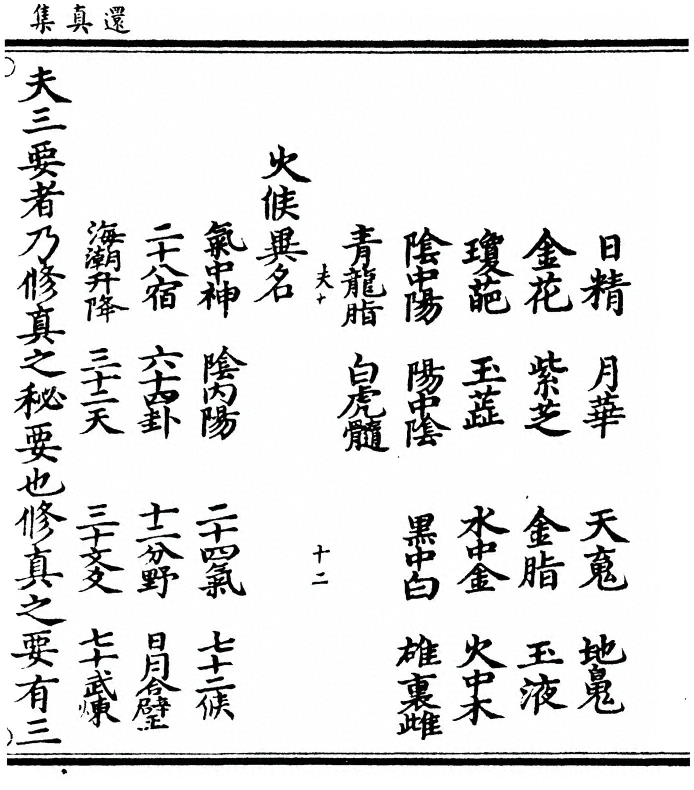 還真集
日精 月華 天䰟 地魄
金花 紫芝 金脂 玉液
瓊葩 玉蕋 水中金 火中木
陰中陽 陽中陰 黑中白 雄裏雌
青龍脂 白虎髓
夫十 十二
火候異名
氣中神 陰內陽 二十四氣 七十二候
二十八宿 六十四卦 十二分野 日月合璧
海潮升降 三十二天 三十文爻 七十武煉
夫三要者乃修真之秘要也修真之要有三